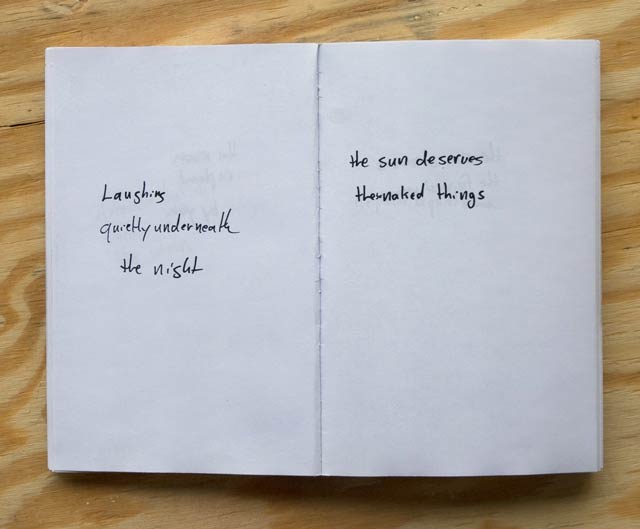 Laughing
quietly underneath
the night
the sun deserves
the naked things